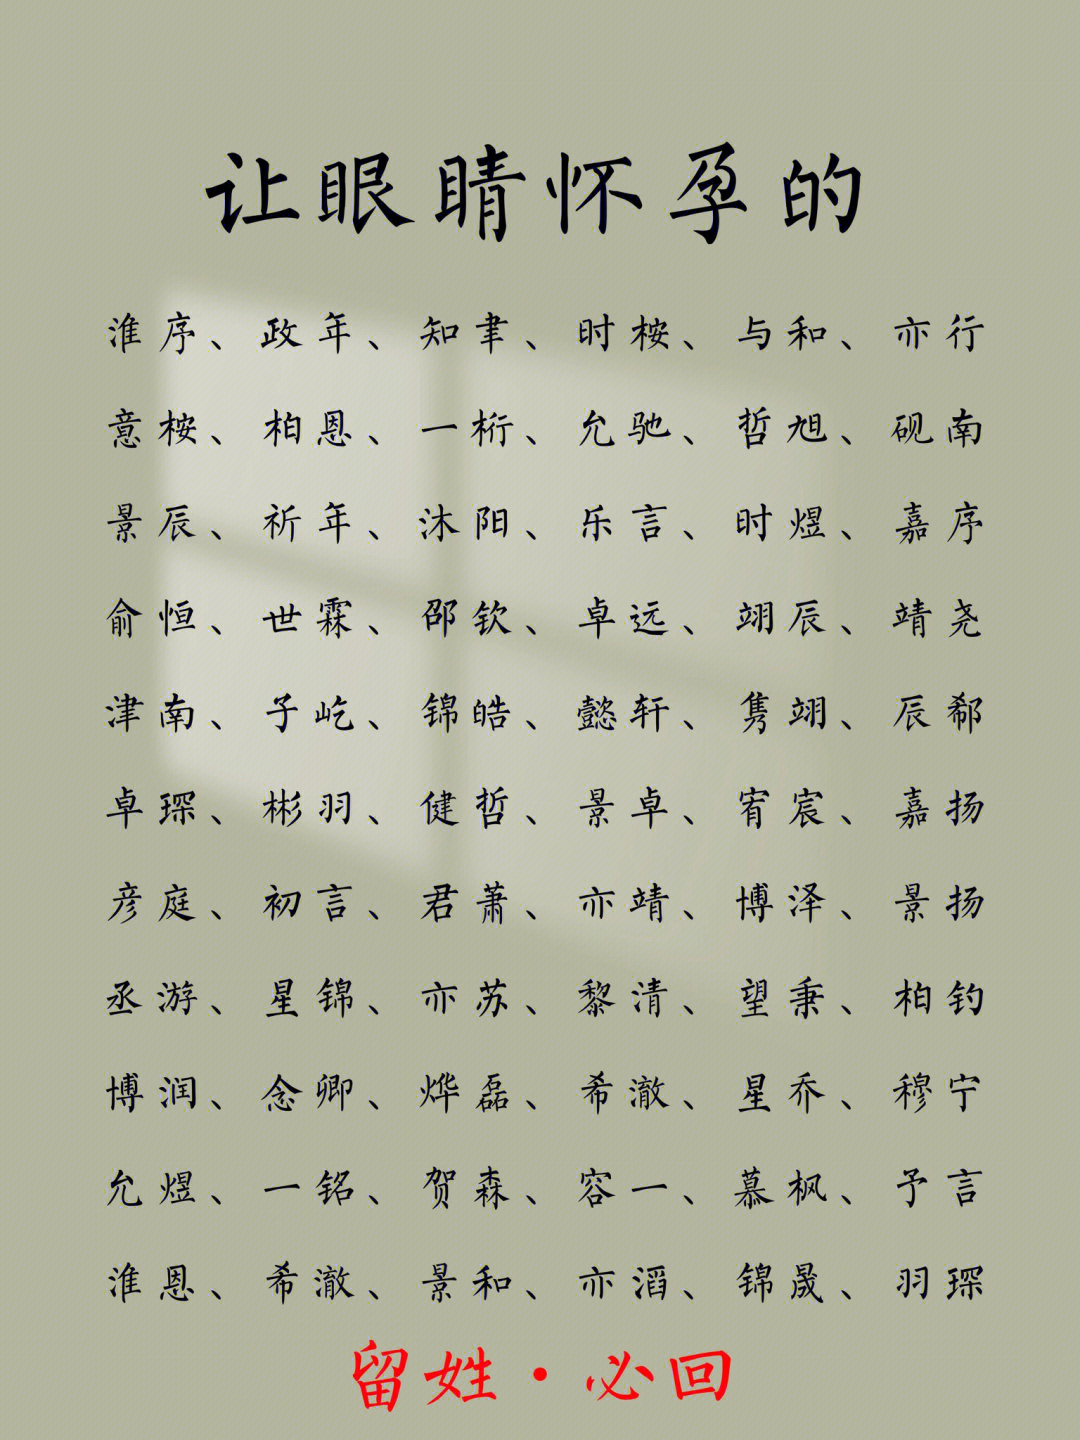 让眼睛怀孕的
淮序、政年、知聿、时桉、与和、亦行
意桉、柏恩、一桁、允驰、哲旭、砚南
景辰、祈年、沐阳、乐言、时煜、嘉序
俞恒、世霖、邵钦、卓远、翊辰、靖尧
津南、子屹、锦皓、懿轩、隽翊、辰郗
卓琛、彬羽、健哲、景卓、宥宸、嘉扬
彦庭、初言、君萧、亦靖、博泽、景扬
丞游、星锦、亦苏、黎清、望秉、柏钓
博润、念卿、烨磊、希澈、星乔、穆宁
允煜、一铭、贺森、容一、慕枫、予言
淮恩、希澈、景和、亦滔、锦晟、羽琛
留姓·必回